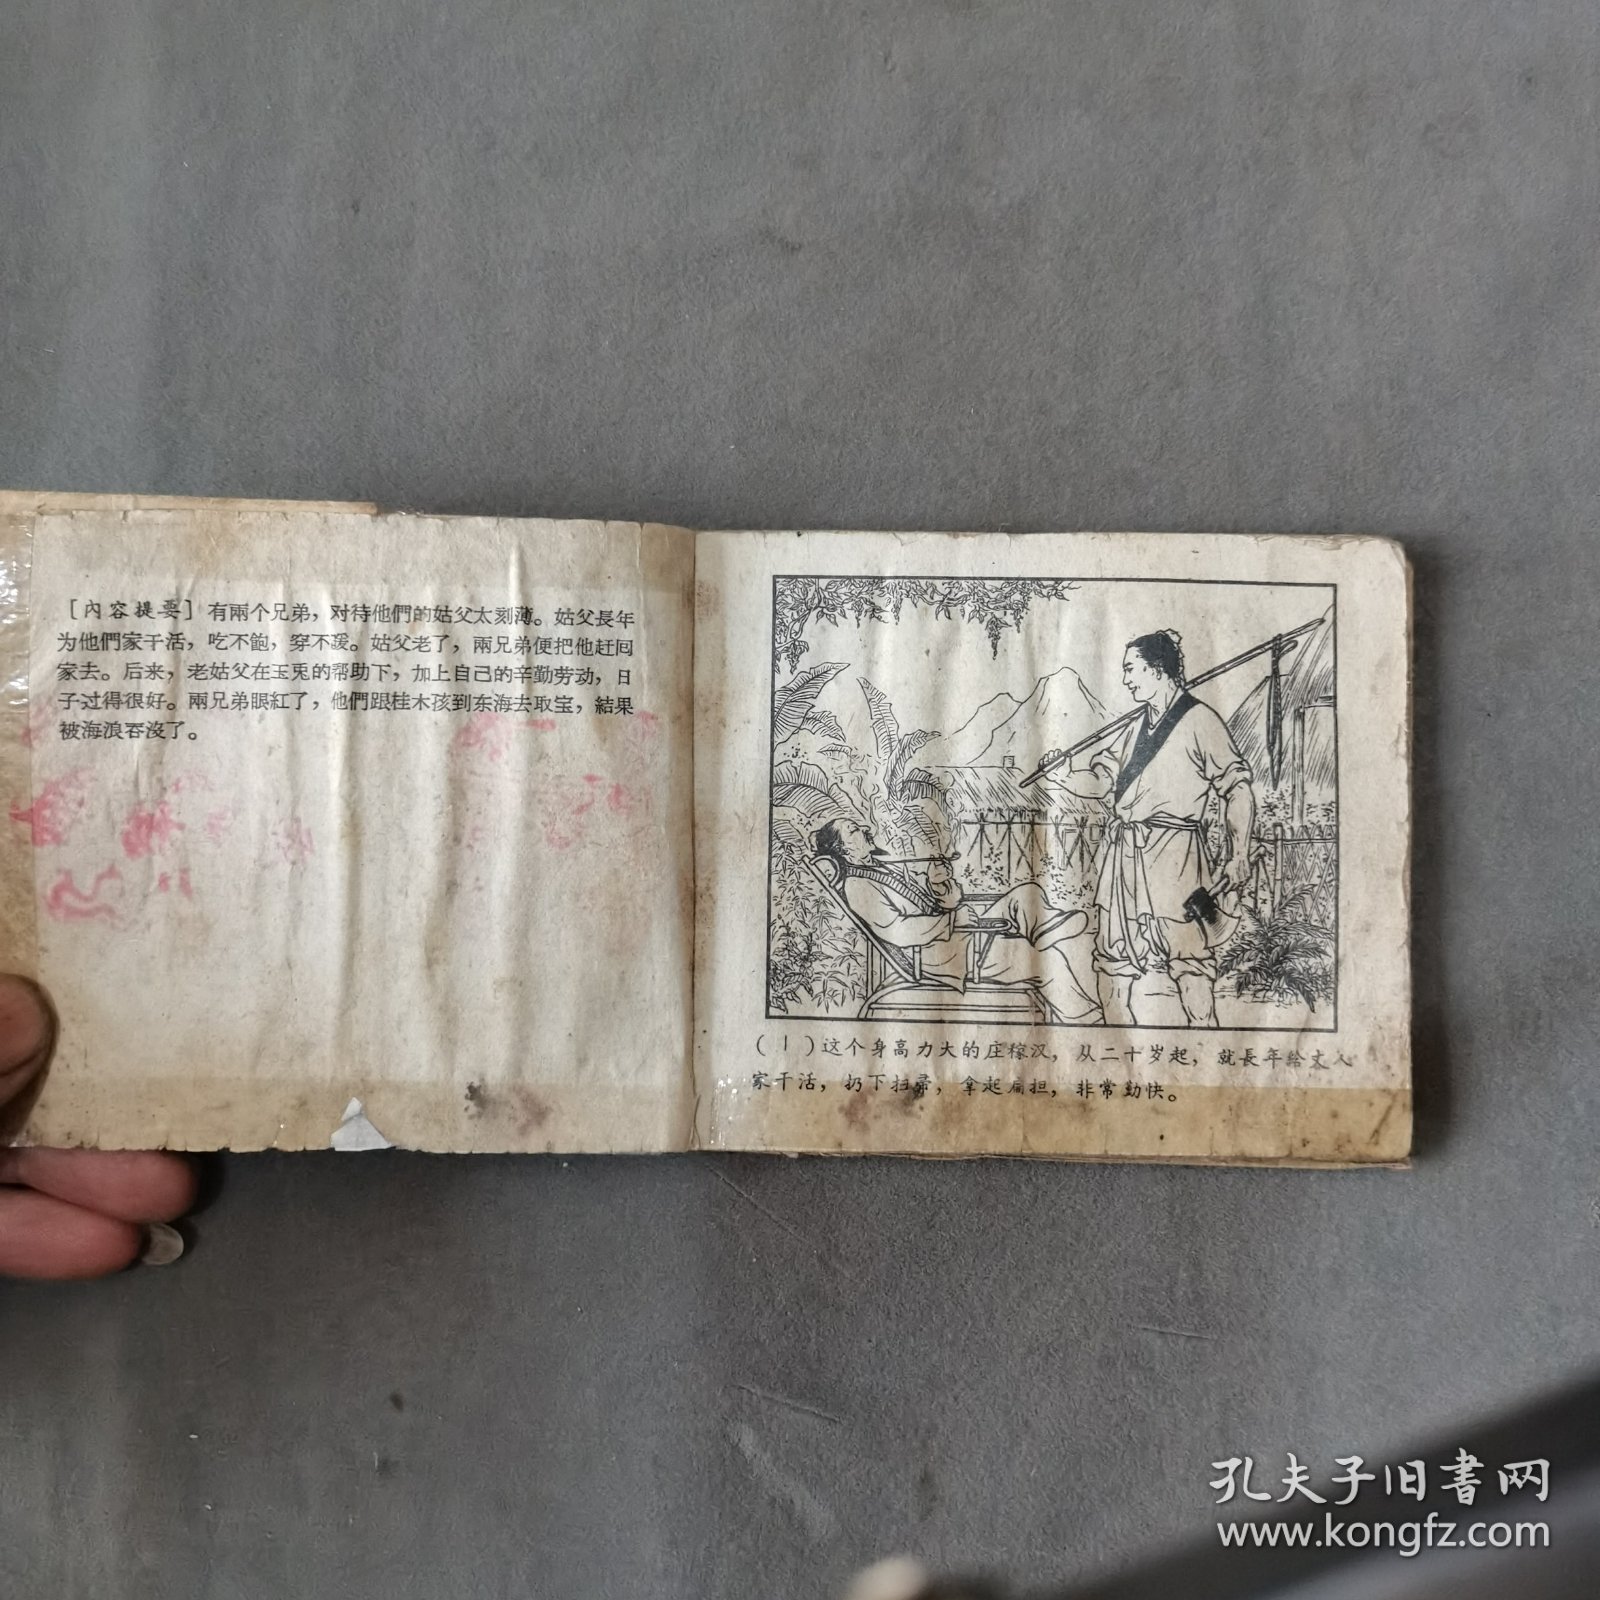 ［內容提要］有兩个兄弟，对待他們的姑父太刻薄。姑父長年
为他們家干活，吃不飽，穿不暖。姑父老了，兩兄弟便把他赶囘
家去。后来，老姑父在玉兎的帮助下，加上自己的辛勤劳动，日
子过得很好。兩兄弟眼紅了，他們跟桂木孩到东海去取宝，結果
被海浪吞沒了。
(1)这个身高力大的庄稼汉，从二十岁起，就長年给丈人
家干活，扔下扫帚，拿起扁担，非常勤快。
孔夫子旧書网
www.kongfz.com